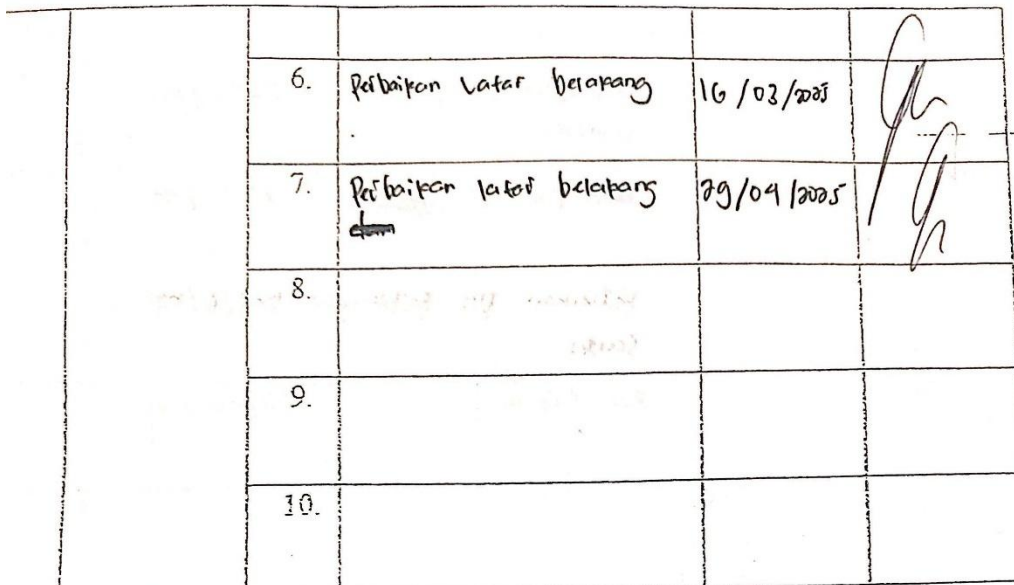 6. Perbaikan Latar belakang 16/03/2025
7. Perbaikan latar belakang 29/04/2025
8.
9.
10.